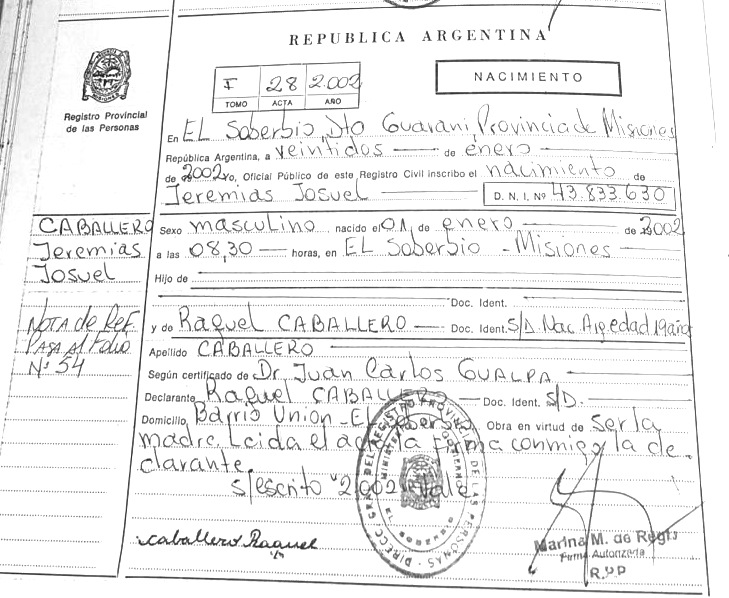 REPUBLICA ARGENTINA
Registro Provincial
de las Personas
I 28 2.002
TOMO ACTA AÑO
NACIMIENTO
En EL Soberbio, Dto Guarani, Provincia de Misiones
República Argentina, a veintidos de enero
de 2002 yo, Oficial Público de este Registro Civil inscribo el nacimiento de
Jeremias Josuel D. N. I. Nº 43.833.630
CABALLERO
Jeremias
Josuel
Sexo masculino nacido el 01 de enero de 2002
a las 08,30 horas, en EL Soberbio - Misiones
Hijo de
Doc. Ident.
NOTA de REF.
PASA Al Folio
Nº 54
y de Raquel CABALLERO Doc. Ident. S/D. Nac. Arg edad 19 años
Apellido CABALLERO
Según certificado de Dr. Juan Carlos GUALPA
Declarante Raquel CABALLERO Doc. Ident. S/D.
Domicilio Barrio Union - El Soberbio Obra en virtud de ser la
madre Leida el acta la firma conmigo la de-
clarante.
s/escrito "2.002" Vale
caballero Raquel
Marina M. de Regis
Firma Autorizada
R.P.P